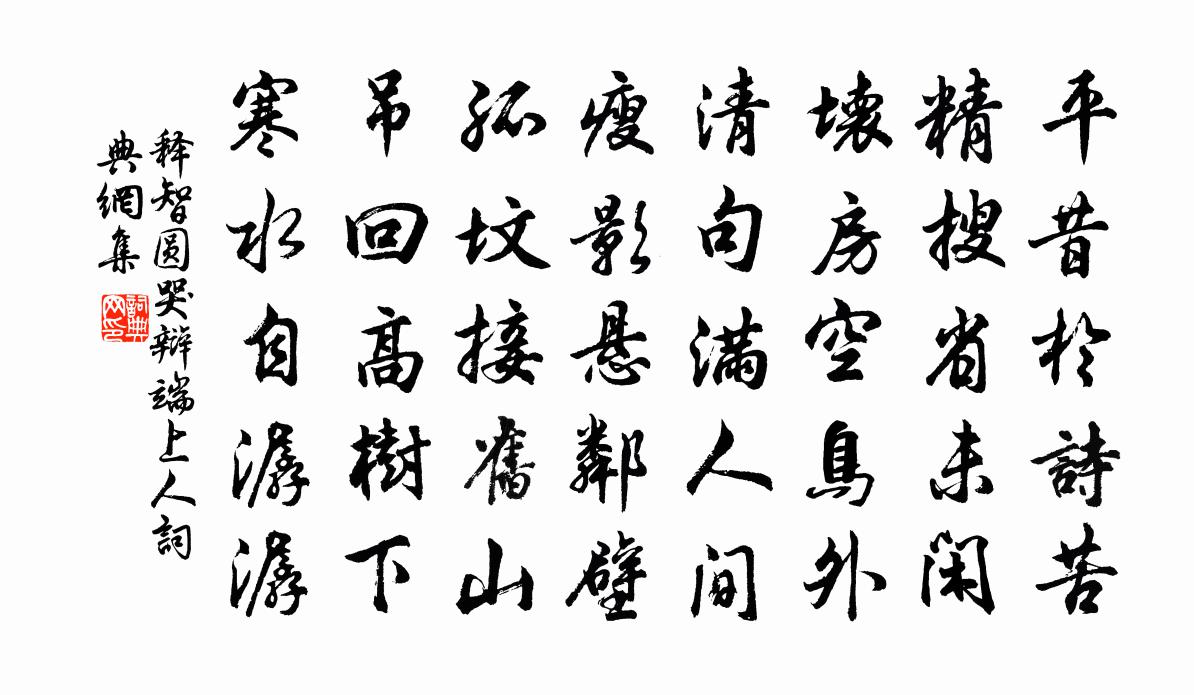 平昔於詩苦
精搜省未閑
壞房空鳥外
清句滿人間
瘦影懸鄰壁
孤墳接舊山
吊回高樹下
寒水自潺潺
释智圆哭辩端上人詞
典網集
詞典网印